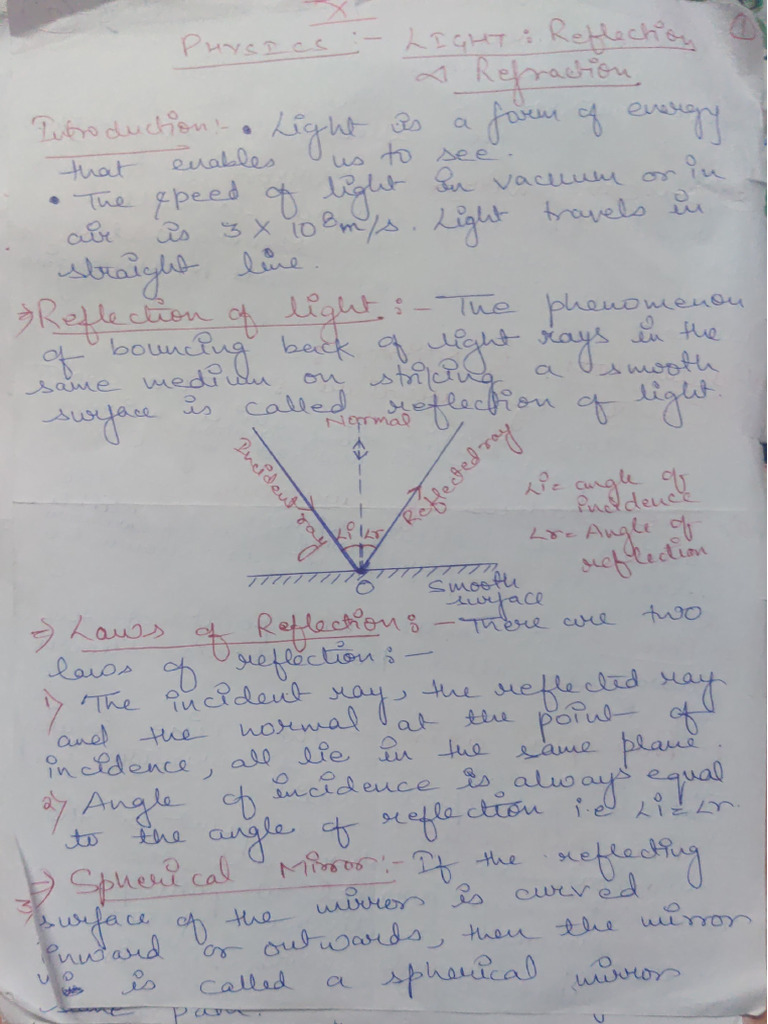 X
PHYSICS :- LIGHT : Reflection
& Refraction
1
Introduction:- • Light is a form of energy
that enables us to see.
• The speed of light in vacuum or in
air is 3 X 10⁸m/s. Light travels in
straight line.
⇒ Reflection of light :- The phenomenon
of bouncing back of light rays in the
same medium on striking a smooth
surface is called reflection of light.
Normal
Incident ray
Reflected ray
∠i ∠r
∠i = angle of
incidence
∠r = Angle of
reflection
O
Smooth
surface
⇒ Laws of Reflection :- There are two
laws of reflection :-
1) The incident ray, the reflected ray
and the normal at the point of
incidence, all lie in the same plane.
2) Angle of incidence is always equal
to the angle of reflection i.e ∠i = ∠r.
⇒ Spherical Mirror:- If the reflecting
surface of the mirror is curved
inward or outwards, then the mirror
is called a spherical mirror